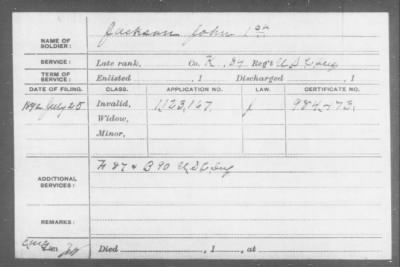 NAME OF SOLDIER: Jackson John 1st
SERVICE: Late rank, Co. K, 87 Reg't U S C Inf
TERM OF SERVICE: Enlisted , 1 Discharged , 1
DATE OF FILING. CLASS. APPLICATION NO. LAW. CERTIFICATE NO.
1892 July 25 Invalid, 1,123,167 J 984,473.
Widow,
Minor,
ADDITIONAL SERVICES: H 87 & B 90 U S C Inf
REMARKS:
Died , 1 , at